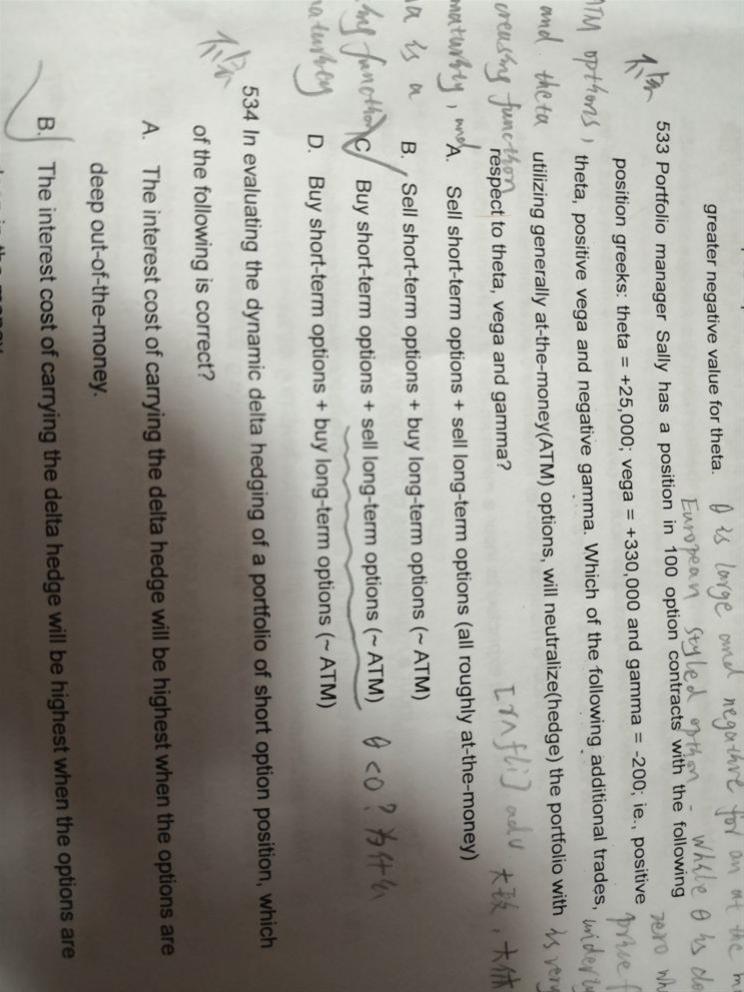 greater negative value for theta.
θ is large and negative for an at the
European styled option - while θ is
533 Portfolio manager Sally has a position in 100 option contracts with the following
zero
position greeks: theta = +25,000; vega = +330,000 and gamma = -200; ie., positive
ATM options,
theta, positive vega and negative gamma. Which of the following additional trades,
and theta
utilizing generally at-the-money(ATM) options, will neutralize(hedge) the portfolio with
is very
creasing function
respect to theta, vega and gamma?
adv. 大致,大体
maturity, and
A. Sell short-term options + sell long-term options (all roughly at-the-money)
a is a
B. Sell short-term options + buy long-term options (~ ATM)
ing function
C. Buy short-term options + sell long-term options (~ ATM) θ<0? 为什么
maturity
D. Buy short-term options + buy long-term options (~ ATM)
534 In evaluating the dynamic delta hedging of a portfolio of short option position, which
of the following is correct?
A. The interest cost of carrying the delta hedge will be highest when the options are
deep out-of-the-money.
B. The interest cost of carrying the delta hedge will be highest when the options are